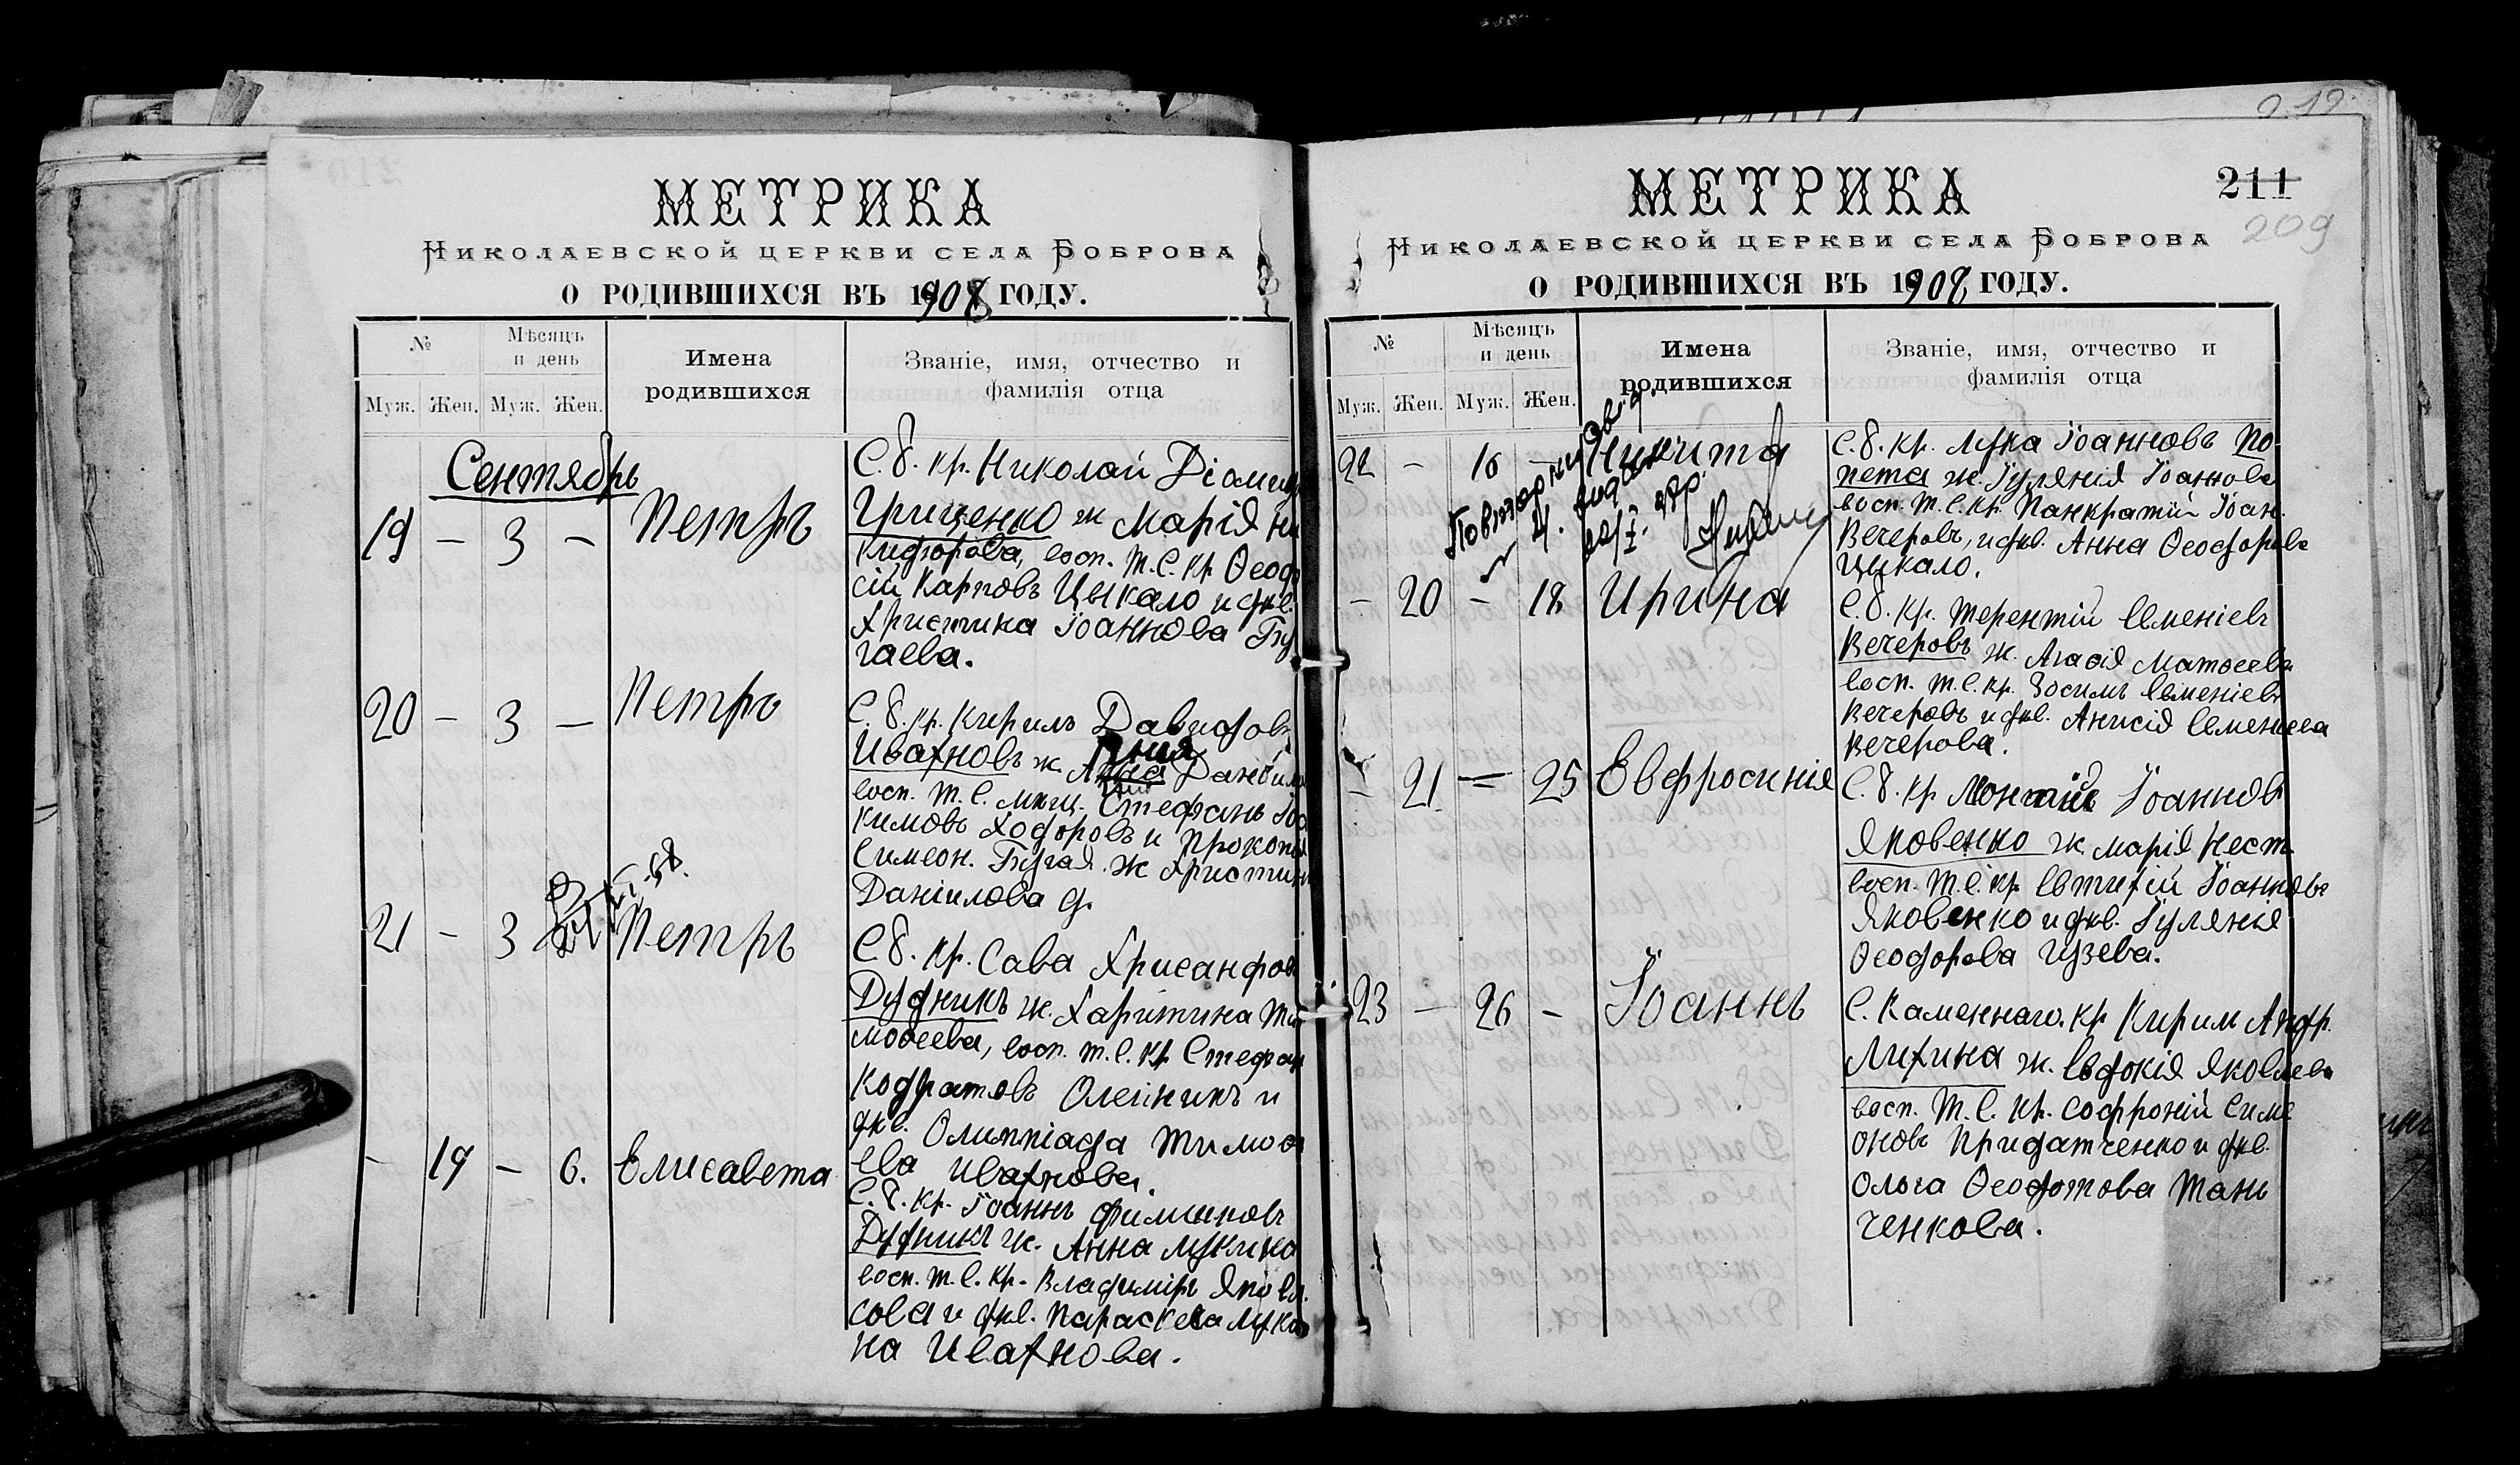 МЕТРИКА
Николаевской церкви села Боброва
О РОДИВШИХСЯ ВЪ 1908 ГОДУ.
№
Мѣсяцъ и день
Имена родившихся
Званіе, имя, отчество и фамилія отца
Муж. Жен. Муж. Жен.
Сентябрь
19 - 3 - Петръ
С. б. кр. Николай Діоми
Грищенко ж Марія Ни
кифорова, восп. т. с. кр Ѳеодо
сій Карповъ Цыкало и дѣв.
Христина Іоаннова Бу
гаева.
20 - 3 - Петръ
С. б. кр. Кирилъ Давидовъ
Ивахновъ ж. Данiило
восп. т. с. мѣщ. Стефанъ Іоа
кимовъ Ходоровъ и Прокопія
Симеон. Бугая ж Христина
Даніилова д.
21 - 3 Петръ
С. б. кр. Сава Хрисанфов
Дудникъ ж. Харитина Ти
моѳеева, восп. т. с. кр Стефан
Кодратовъ Олейникъ и
дѣв. Олимпіада Тимоѳ
ева Ивахнова.
- 19 - 6. Елисавета
С. б. кр. Іоаннъ Филиповъ
Дудникъ ж. Анна Лукина
восп. т. с. кр. Владиміръ Яковл.
Сова и дѣв. Параскева Луки
на Ивахнова.
МЕТРИКА
211
209
Николаевской церкви села Боброва
О РОДИВШИХСЯ ВЪ 1908 ГОДУ.
№
Мѣсяцъ и день
Имена родившихся
Званіе, имя, отчество и фамилія отца
Муж. Жен. Муж. Жен.
22 - 10 - Никита
С. б. кр. Лука Іоанновъ По
пета ж. Іуліанія Іоаннова
восп. т. с. кр. Панкратій Іоан.
Вечеровъ, и дѣв. Анна Ѳеодорова
Цыкало.
- 20 - 18 Ирина
С. б. кр. Терентій Семеніевъ
Вечеровъ ж. Агаѳія Матѳеева
восп. т. с. кр. Зосимъ Семеніевъ
Вечеровъ и дѣв. Анисія Семеніева
Вечерова.
- 21 - 25 Евфросинія
С. б. кр Іоанновъ
Яковенко ж. Марія Нест.
восп. т. с. кр Евтихій Іоанновъ
Яковенко и дѣв. Іуліанія
Ѳеодорова Цузева.
23 - 26 - Іоаннъ
С. Каменнаго. кр Кирил Андр.
Лихина ж. Евдокія Яковлева
восп. т. с. кр. Софроній Симе
оновъ Придатченко и дѣв.
Ольга Ѳеодотова Тань
ченкова.